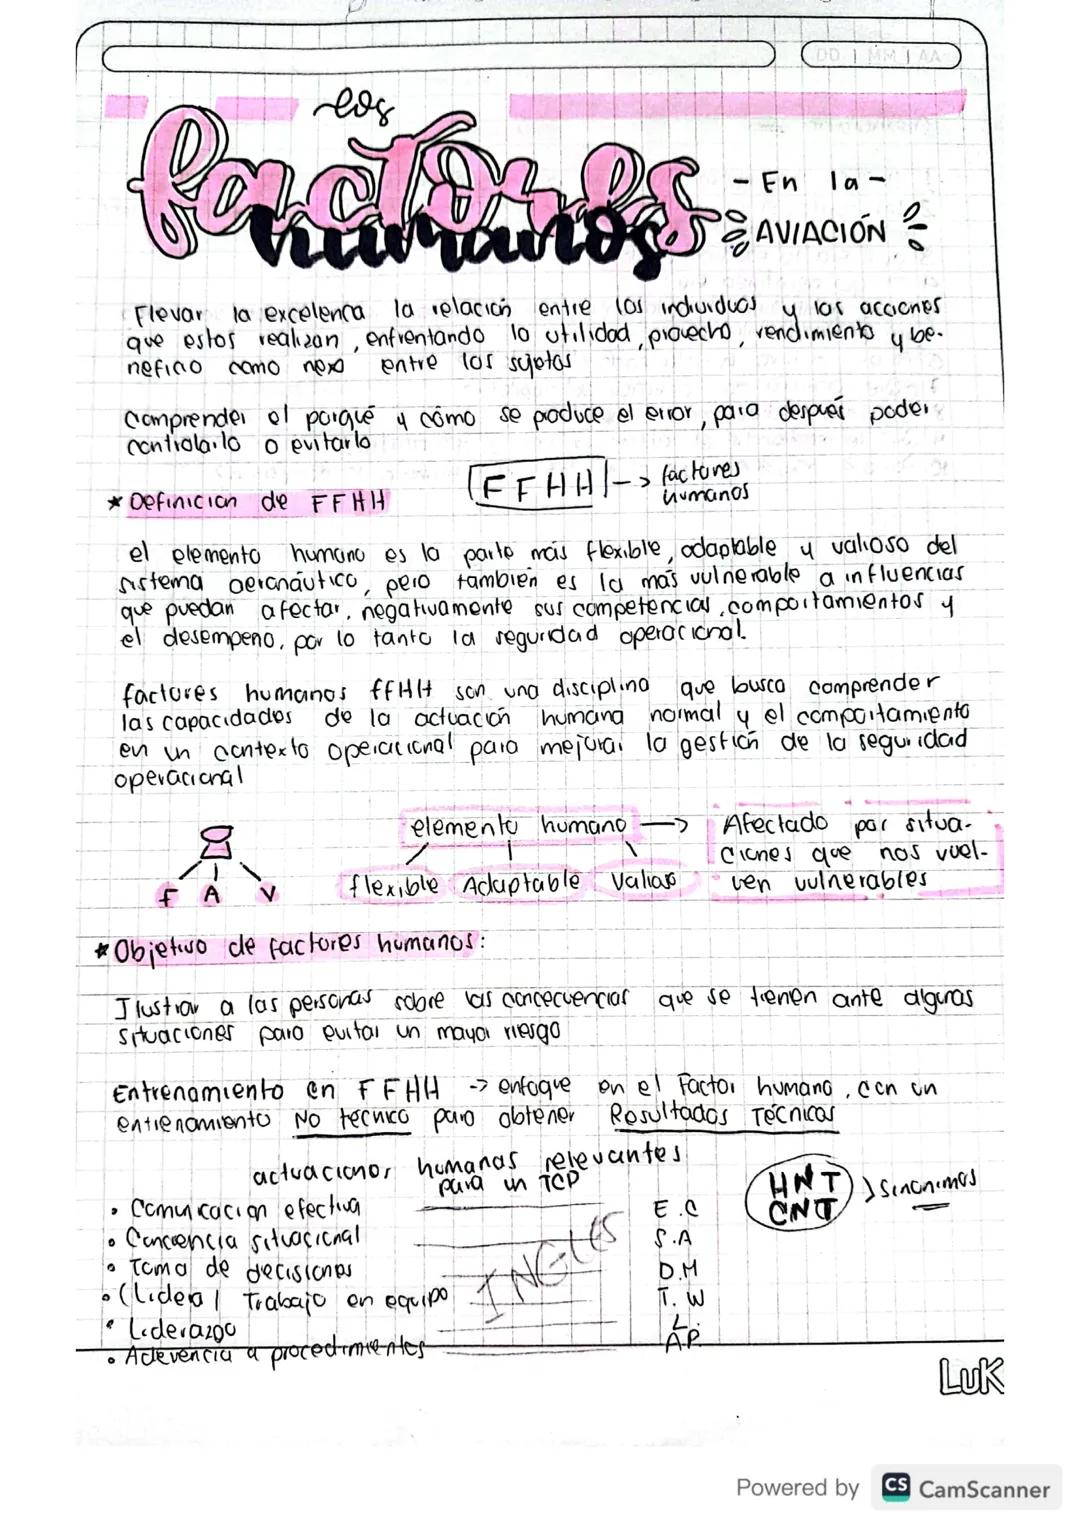 DD | MM | AA
los
factores
humanos
- En la -
AVIACIÓN
Elevar la excelenca la relación entre los individuos y las acciones
que estos realizan, enfrentando la utilidad, provecho, rendimiento y be-
neficio como nexo entre los sujetos
Comprender el porqué y cómo se produce el error, para después poder
controlarlo o evitarlo
FFHH -> factores
humanos
* Definicion de FFHH
el elemento humano es la parte más flexible, adaptable y valioso del
sistema aeronáutico, pero también es la más vulnerable a influencias
que puedan afectar, negativamente sus competencias, comportamientos y
el desempeño, por lo tanto la seguridad operacional.
factores humanos ffHH son una disciplina que busca comprender
las capacidades de la actuación humana normal y el comportamiento
en un contexto operacional para mejorar la gestión de la seguridad
operacional
elemento humano -> Afectado por situa-
ciones que nos vuel-
ven vulnerables
F A V
flexible Adaptable Valioso
* Objetivo de factores humanos:
Ilustrar a las personas sobre las concecuencias que se tienen ante algunas
situaciones para evitar un mayor riesgo
Entrenamiento en FFHH -> enfoque en el Factor humano, con un
entrenamiento No técnico para obtener Resultados Técnicos
actuaciones humanas relevantes
para un TCP
HNT
CNT
> Sinonimos
• Comunicacion efectiva E.C
• Conciencia situacional S.A
• Toma de decisiones D.M
• (Lidera | Trabajo en equipo T.W
• Liderazgo L.
• Aderencia a procedimientos A.P.
INGLES
LuK
Powered by CS CamScanner